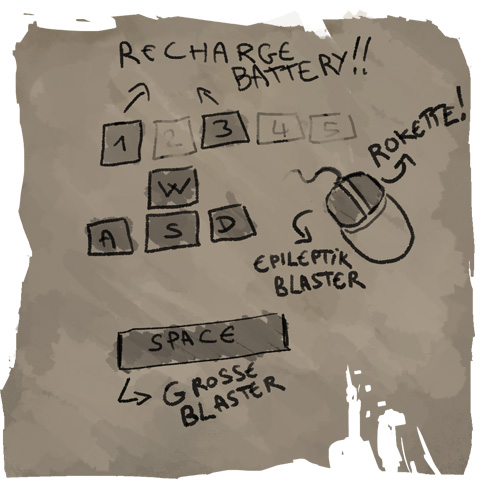 RECHARGE
BATTERY!!
1 2 3 4 5
ROKETTE!
W
A S D
EPILEPTIK
BLASTER
SPACE
GROSSE
BLASTER